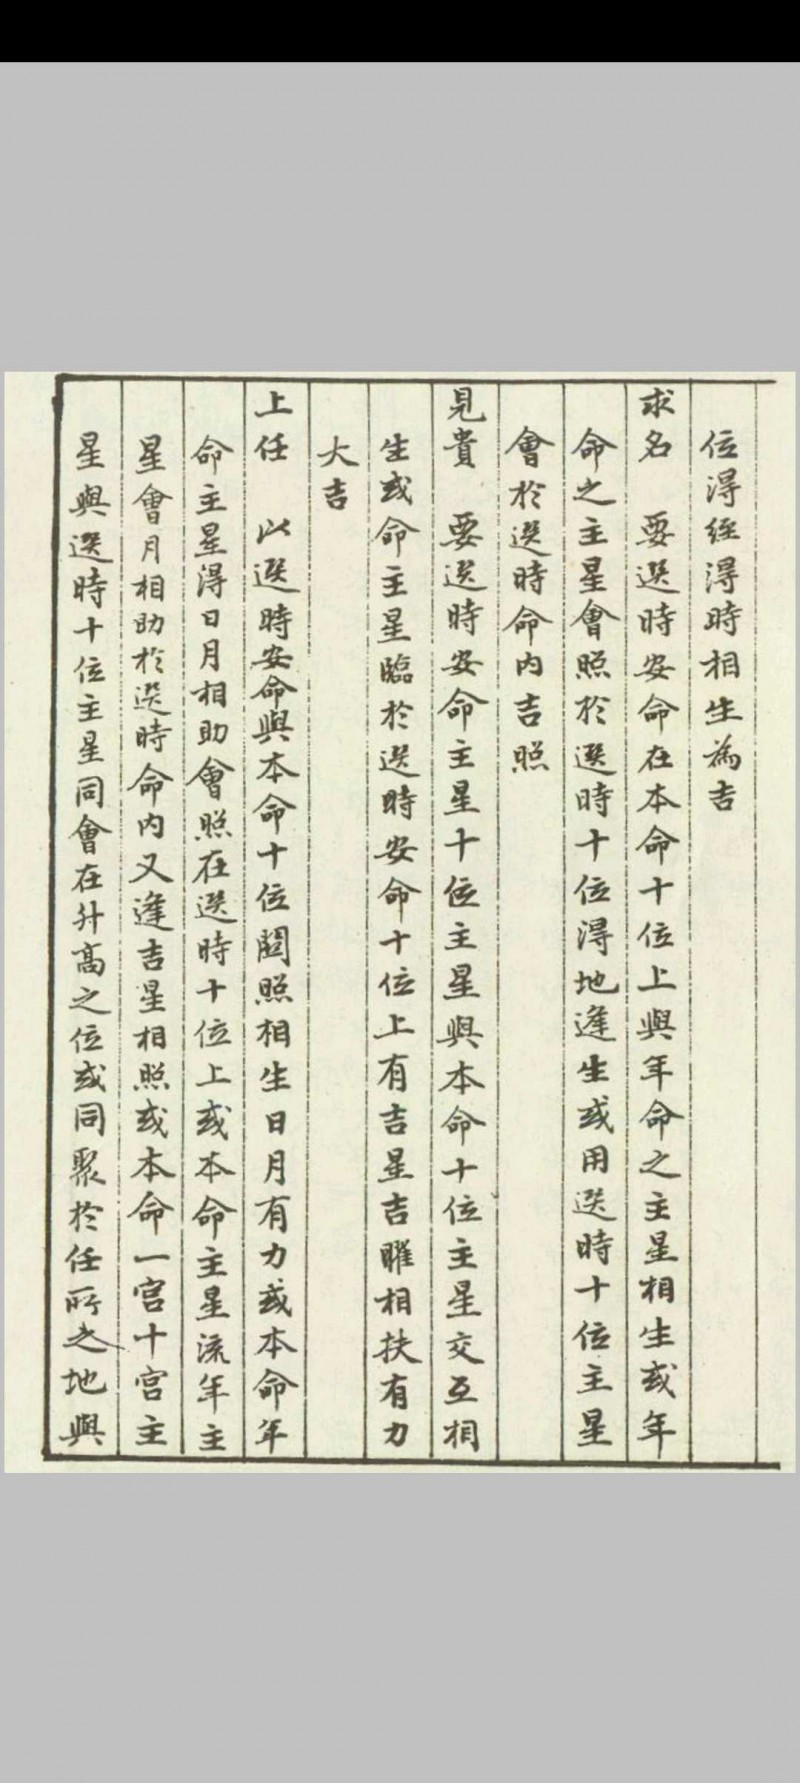 位得經得時相生為吉
求名　要選時安命在本命十位上與年命之主星相生或年
命之主星會照於選時十位得地逢生或用選時十位主星
會於選時命內吉照
見貴　要選時安命主星十位主星與本命十位主星交互相
生或命主星臨於選時安命十位上有吉星吉曜相扶有力
大吉
上任　以選時安命與本命十位關照相生日月有力或本命年
命主星得日月相助會照在選時十位上或本命主星流年主
星會月相助於選時命內又逢吉星相照或本命一宮十宮主
星與選時十位主星同會在升高之位或同聚於任所之地與